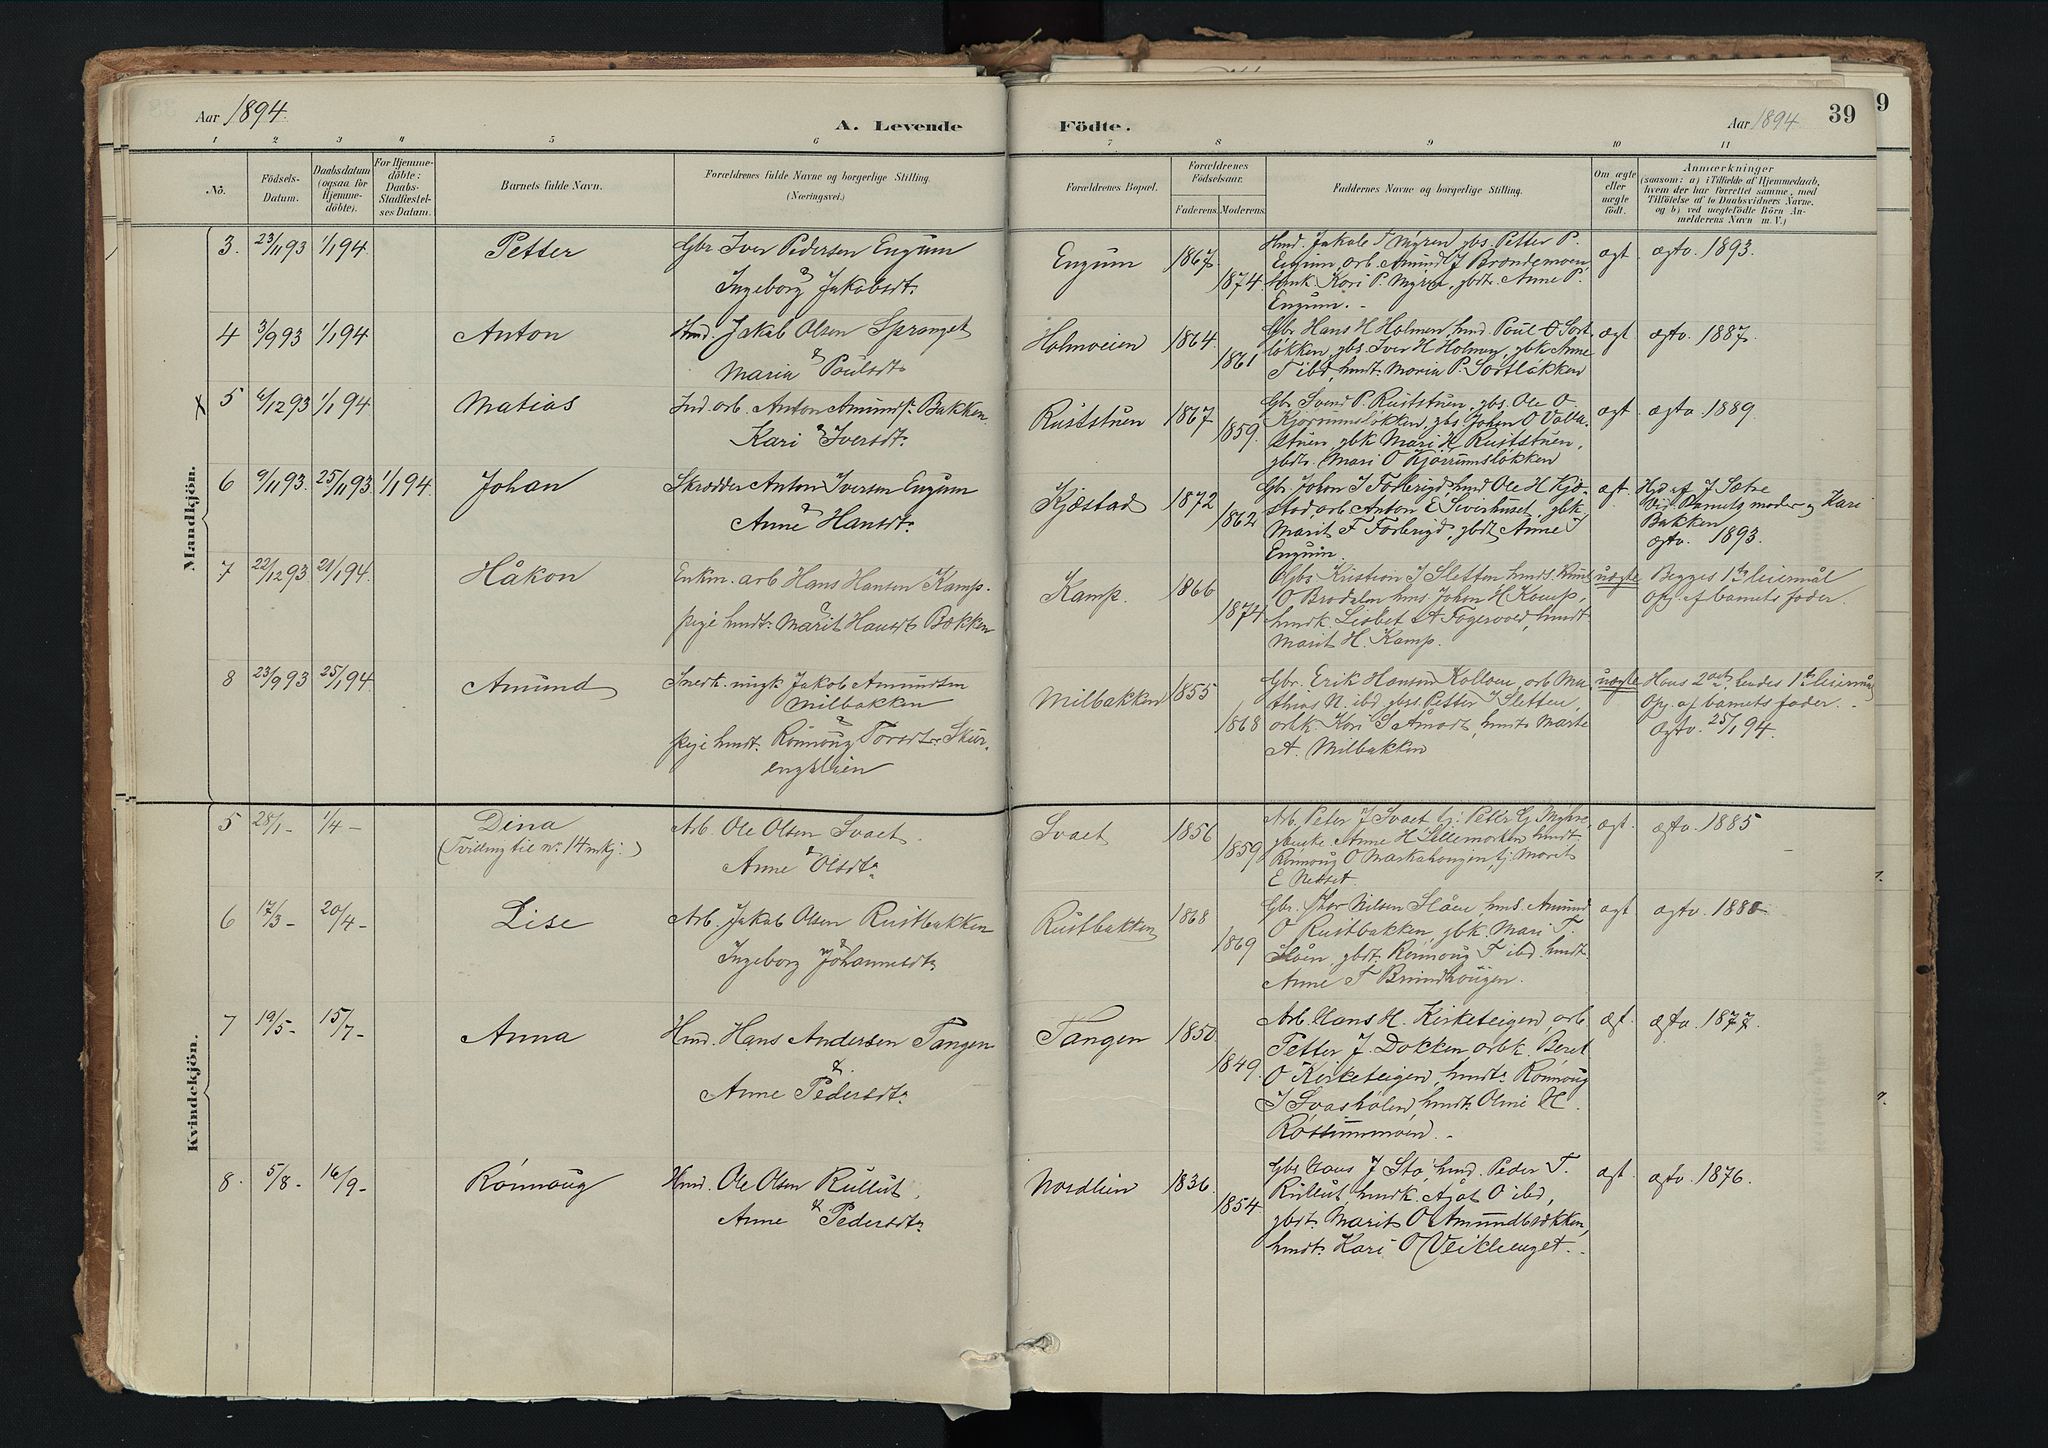 Aar 1894.
A. Levende Födte.
Aar 1894
39
9
1 2 3 4 5 6 7 8 9 10 11
No.
Födsels-
Datum.
Daabsdatum
(ogsaa for
Hjemme-
döbte).
For Hjemme-
döbte:
Daabs-
Stadfæstel-
ses Datum.
Barnets fulde Navn.
Forældrenes fulde Navne og borgerlige Stilling.
(Næringsvei.)
Forældrenes Bopæl.
Forældrenes
Födselsaar.
Faderens. Moderens.
Faddernes Navne og borgerlige Stilling.
Om ægte
eller
uægte
födt.
Anmærkninger
(saasom: a) i Tilfælde af Hjemmedaab,
hvem der har forrettet samme, med
Tilföielse af to Daabsvidners Navne.
og b) ved uægtefödte Börn An-
melderens Navn m. V.)
Mandkjön.
3. 23/11 93 1/1 94 Petter
Gbr Iver Pedersen Engum
&
Ingeborg Jakobsdtr
Engum 1867 1874
Hmd. Jakob T Myren gbs. Petter P.
Engum, arb. Amund J Brændemoen,
Kari P. Myren, gbdtr Anne P.
Engum.
ægt ægtv. 1893.
4 3/9 93 1/1 94 Anton
Hmd. Jakob Olsen Spranget
&
Maria Poulsdtr
Holmveien 1864. 1861
Gbr Hans H Holmen, hmd. Poul O Sort-
løkken, gbs. Iver H Holmen, gbk Anne
T ibd, hmdt Maria P. Sortløkken
ægt ægtv. 1887.
x 5 6/12 93 1/1 94 Matias
Ind. arb. Anton Amunds. Bakken
&
Kari Iversdtr
Ruststuen 1867 1859.
Gbr Svend P. Ruststuen, gbs. Ole O
Kjørrumsløkken, gbs Johan O Valla-
stuen, gbk Mari H. Ruststuen,
gbdtr. Mari O Kjørrumsløkken
ægt. ægtv. 1889.
6 9/11 93. 25/11 93 1/1 94. Johan
Skrædder Anton Iversen Engum
&
Anne Hansdtr
Kjæstad 1872 1862
Gbr. Johan J Forberigd, hmd Ole H Kjæ-
stad, arb Anton E Siverhuset, gbk.
Marit F Forberigd, gbdt Anne I
Engum.
ægt. Hjd af J Sætre
Vid. Barnets moder og Kari
Bakken
ægtv. 1893.
7 22/12 93 21/1 94. Håkon
Enkm. arb Hans Hansen Kamp.
&
pige hmdtr Marit Hansdtr Bækken
Kamp. 1866 1874
Gbs Kristian J Sletten hmds. Knut
O Brodalen hms. Johan H Kamp,
hmdk. Lisbet A Fagervold, hmdt
Marit H. Kamp.
uægte Begges 1ste leiermål
Opg. af barnets fader.
8 23/9 93 25/1 94 Amund
Snedk. ungk Jakob Amundsen
Milbakken
&
pige hmdt. Rønnoug Torsdtr Skur-
engslien
Milbakken 1855 1868
Gbr. Erik Hansen Kolloen, arb Ma-
thias N. ibd gbs. Petter J Sletten,
arbk Kari hmdt Marte
A. Milbakken
uægte Hans 2det, hendes 1ste leiermål
Opg. af barnets fader.
ægtv. 25/1 94.
Kvindekjön.
5 28/1 - 1/4 - Dina
(Tvilling til nr. 14 mkj.)
Arb. Ole Olsen Svaet.
&
Anne Olsdtr
Svaet 1856 1859
Arb. Peter J Svaet Peter G Myhre,
Anne H Sellemorken hmdt.
Rønnoug O Markahaugen, Marit
E Nesset.
ægt. ægtv. 1885
6 17/3 - 20/4 - Lise
Arb. Jakob Olsen Rustbakken
&
Ingeborg Johannesdtr
Rustbakken 1868 1869
Gbr. Thor Nilsen Slåen, hms. Amund
O Rustbakken, gbk. Mari T.
Slåen, gbdt. Rønnoug T ibd. hmdt.
Anne T Brundhaugen.
ægt ægtv. 1888
7 19/5 - 15/7 - Anna
Hmd. Hans Andersen Tangen
&
Anne Pedersdtr
Tangen 1850 1849.
Arb. Hans H. Kirketeigen, arb
Petter J. Dokken arbk. Beret
O Kirketeigen, hmdtr Rønnoug
I Svashølen, hmdt. H.
Røssummoen.
ægt. ægtv. 1877.
8. 5/8 - 16/9 - Rønnoug
Hmd. Ole Olsen Rullut,
&
Anne Pedersdtr
Nordlien 1836. 1854
Gbr Hans J Stø, hmd. Peder T.
Rullut, hmdk. Ajøt O ibd,
gbdt. Marit O Amundbækken,
hmdtr Kari O Veiklenget.
ægt ægtv. 1876.